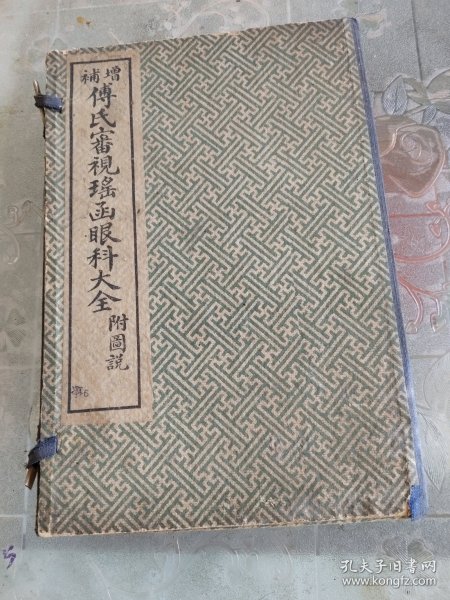 增補
傅氏審視瑤函眼科大全
附圖説
孔夫子旧书网
www.kongfz.com